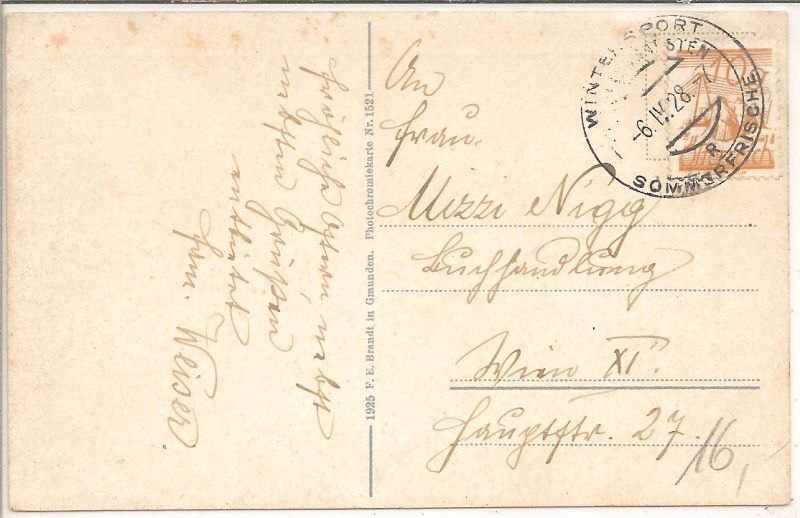 Fröhliche Ostern, nebst
besten Grüßen
entbietet
Fam. Weiser
1925 F. E. Brandt in Gmunden. Photochromiekarte Nr. 1521
WINTERSPORT
STEN
-6.IV.28.-7
SOMMERFRISCHE
An
Frau.
Mizzi Nigg
Buchhandlung
Wien XI.
Hauptstr. 27.
16,-